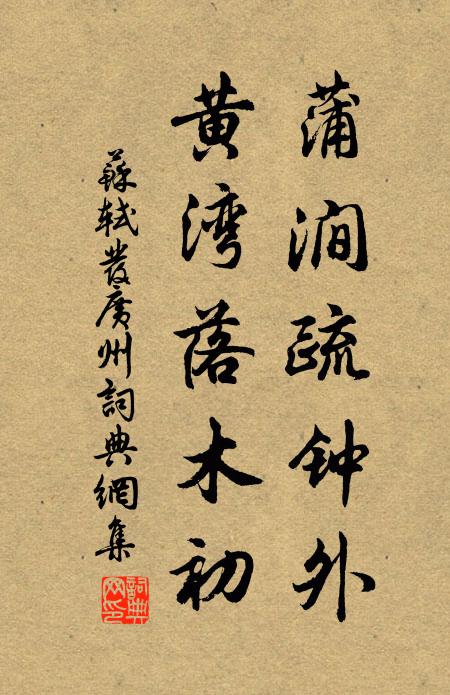 蒲涧疏钟外
黄湾落木初
蘇軾發廣州詞典網集
詞典网印